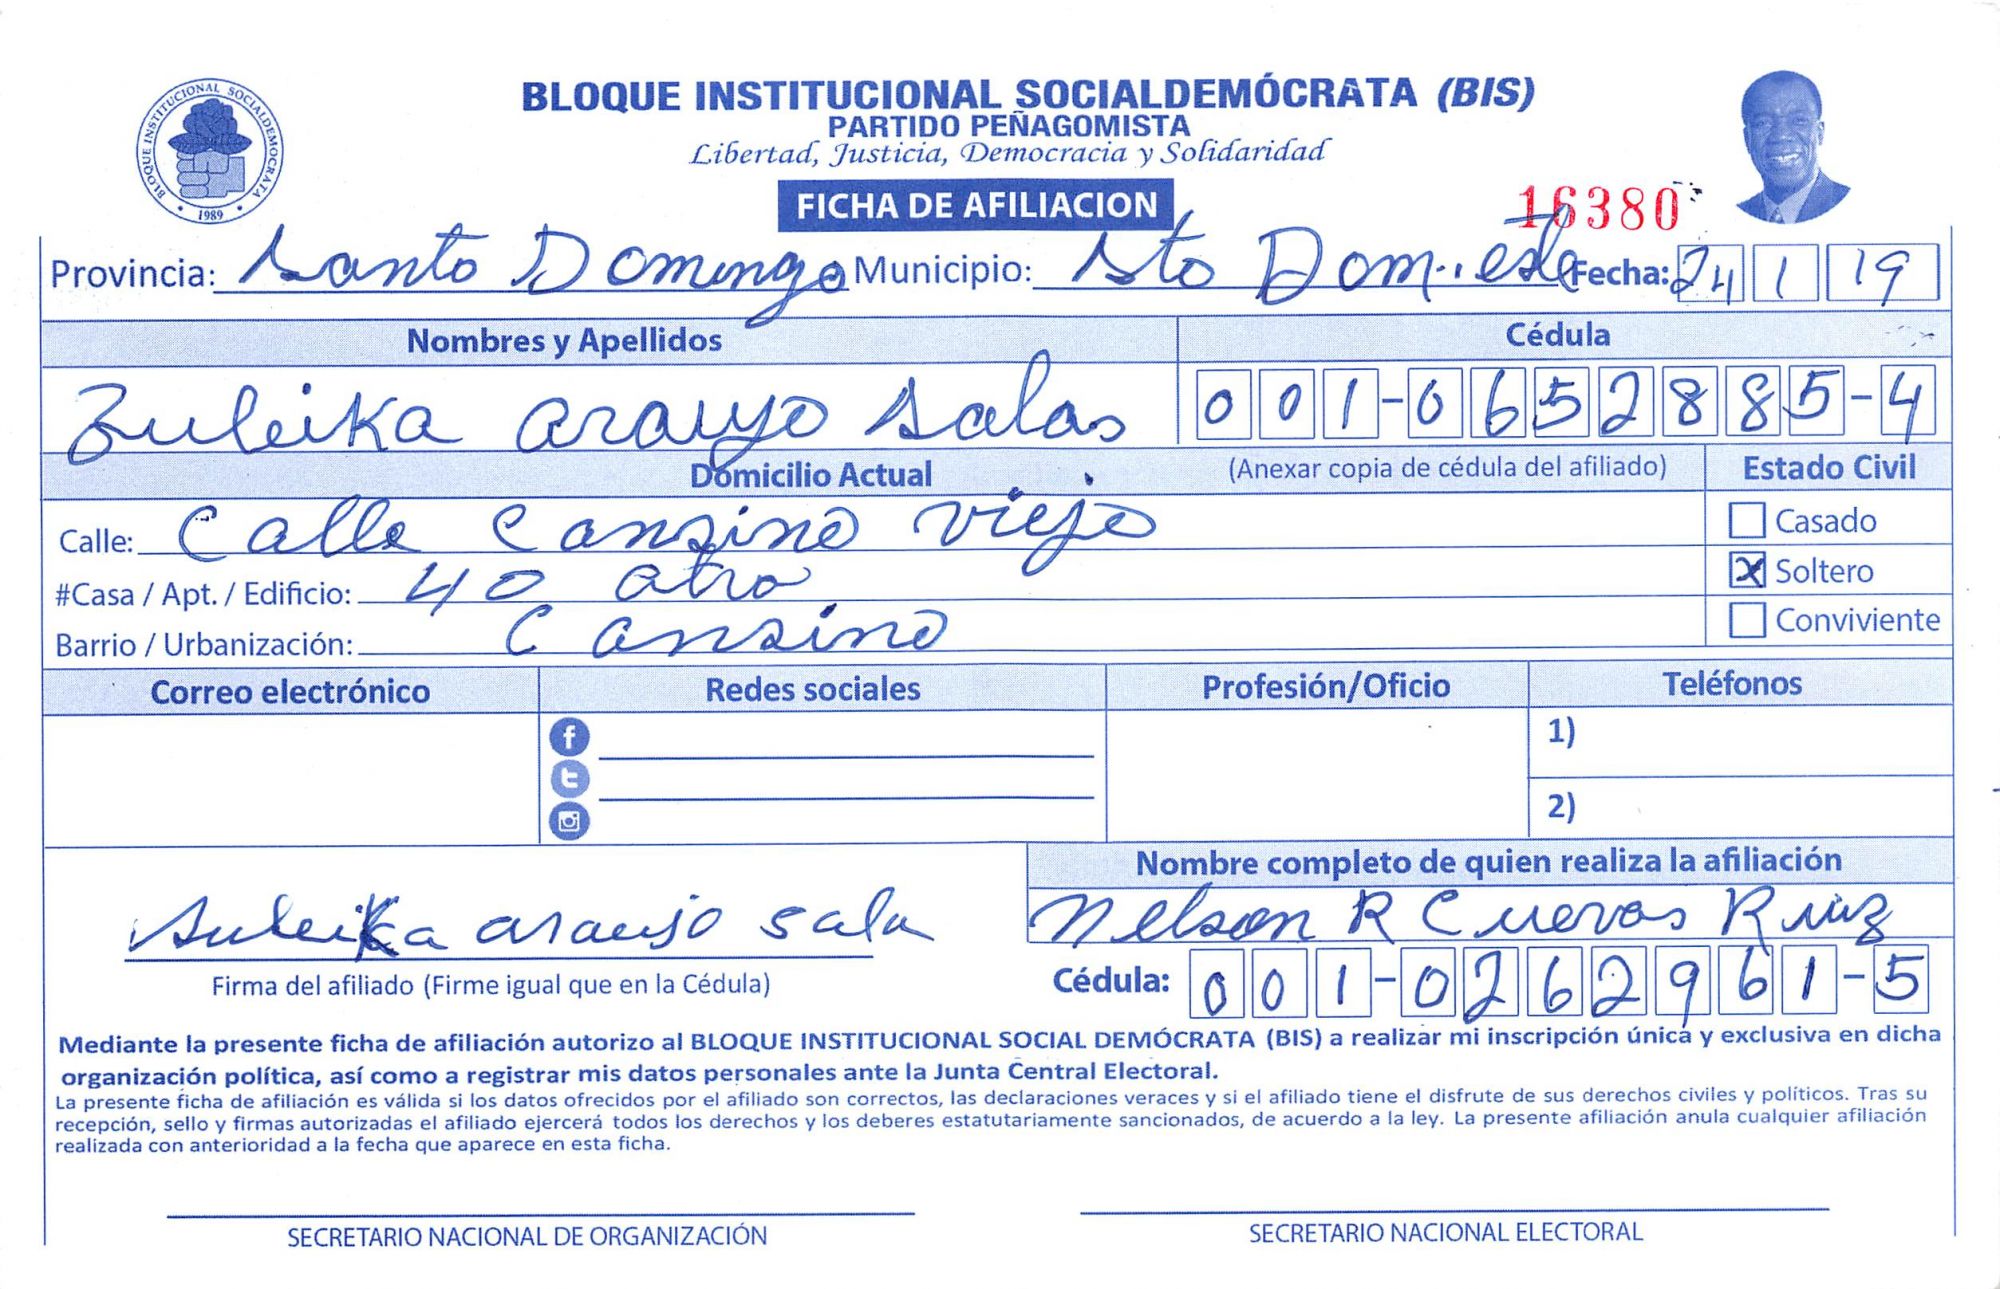 BLOQUE INSTITUCIONAL SOCIALDEMOCRATA
1989
BLOQUE INSTITUCIONAL SOCIALDEMÓCRATA (BIS)
PARTIDO PEÑAGOMISTA
Libertad, Justicia, Democracia y Solidaridad
FICHA DE AFILIACION
16380
Provincia: Santo Domingo Municipio: Sto Dom. este Fecha: 24 1 19
Nombres y Apellidos Cédula
Zuleika araujo Salas 001-0652885-4
Domicilio Actual (Anexar copia de cédula del afiliado) Estado Civil
Calle: Calle Cansino viejo Casado
#Casa / Apt. / Edificio: 40 atro X Soltero
Barrio / Urbanización: Cansino Conviviente
Correo electrónico Redes sociales Profesión/Oficio Teléfonos
1)
2)
Nombre completo de quien realiza la afiliación
Suleika araujo sala Nelson R Cuevas Ruiz
Firma del afiliado (Firme igual que en la Cédula) Cédula: 001-0262961-5
Mediante la presente ficha de afiliación autorizo al BLOQUE INSTITUCIONAL SOCIAL DEMÓCRATA (BIS) a realizar mi inscripción única y exclusiva en dicha
organización política, así como a registrar mis datos personales ante la Junta Central Electoral.
La presente ficha de afiliación es válida si los datos ofrecidos por el afiliado son correctos, las declaraciones veraces y si el afiliado tiene el disfrute de sus derechos civiles y políticos. Tras su
recepción, sello y firmas autorizadas el afiliado ejercerá todos los derechos y los deberes estatutariamente sancionados, de acuerdo a la ley. La presente afiliación anula cualquier afiliación
realizada con anterioridad a la fecha que aparece en esta ficha.
SECRETARIO NACIONAL DE ORGANIZACIÓN SECRETARIO NACIONAL ELECTORAL